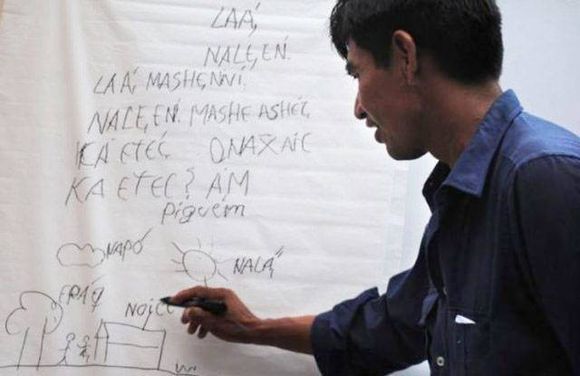 LAÁ,
NALE,EN.
LAÁ, MASHE,NNÍ.
NALE,EN. MASHE ASHEC,
KÁ ETEC, QNAXAIC
KA ETEC? ÁM
Piguém
NAPÓ
NALÁ,
EPÁQ
NOJEC